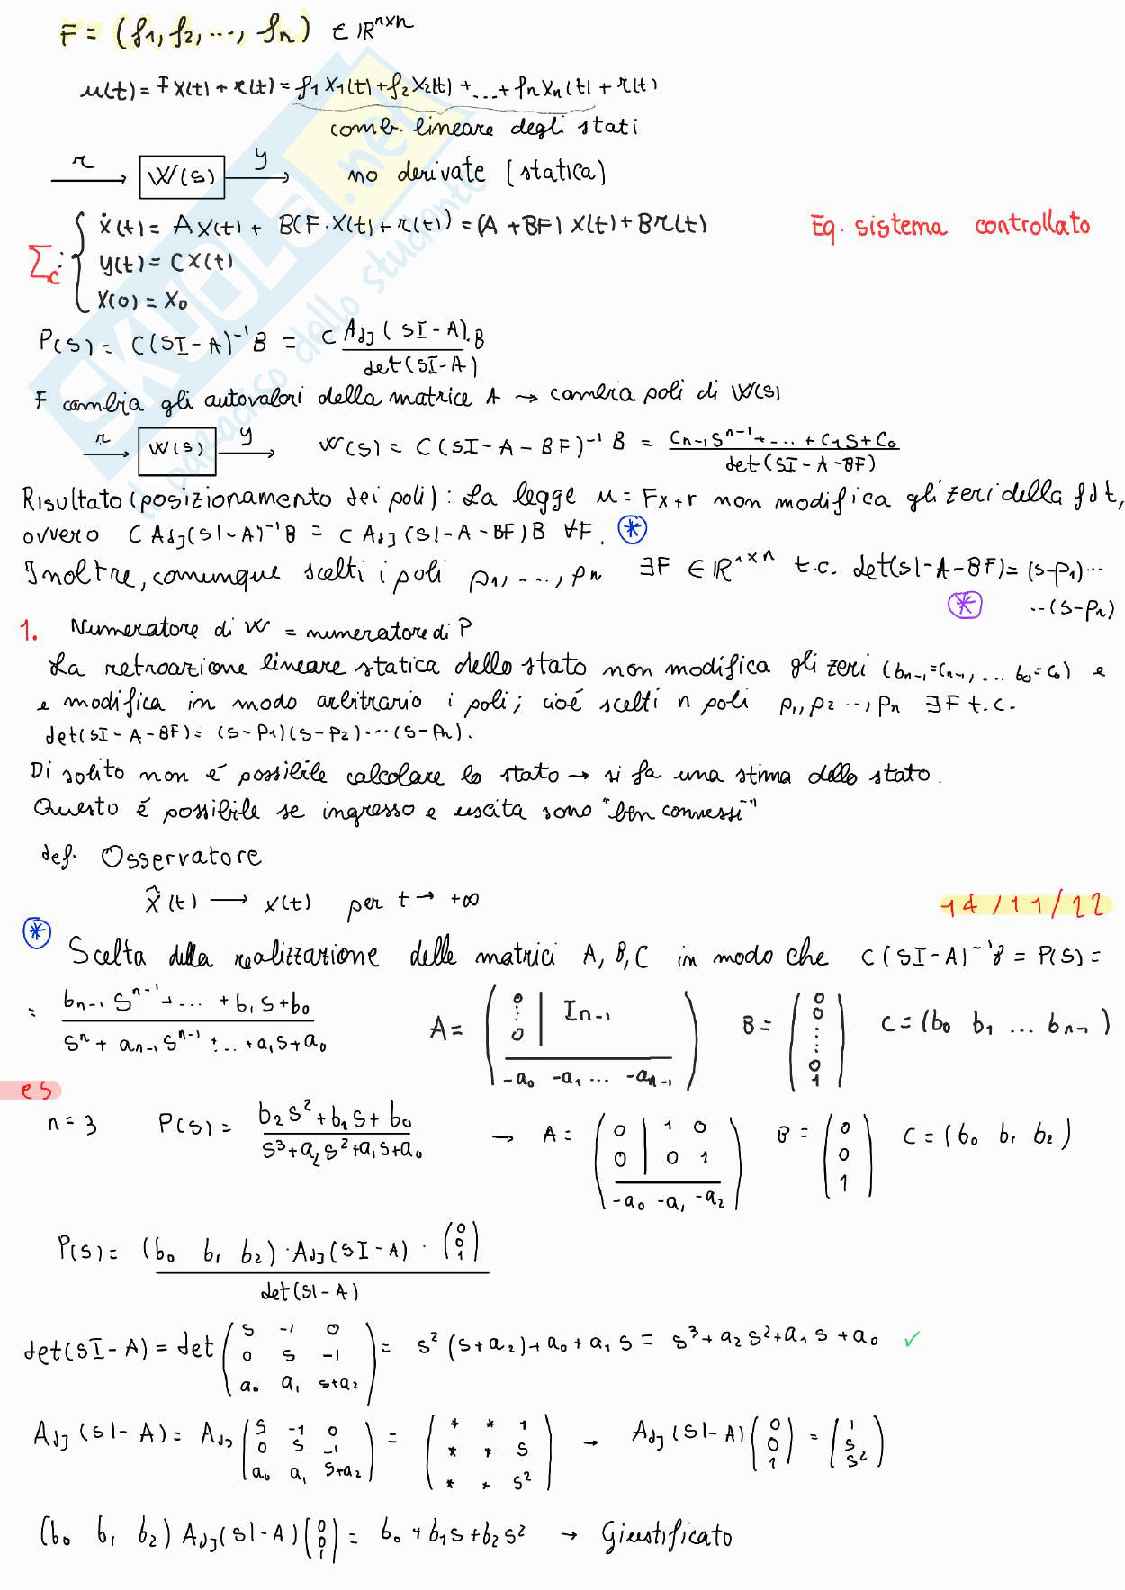 F = (f1, f2, ..., fn) ∈ ℝ^{n×n}
u(t) = F x(t) + r(t) = f1 x1(t) + f2 x2(t) + ... + fn xn(t) + r(t)
comb. lineare degli stati
r → W(s) → y no derivate (statica)
Σc: { ẋ(t) = A x(t) + B(F·x(t) + r(t)) = (A + BF) x(t) + B r(t) Eq. sistema controllato
y(t) = C x(t)
x(0) = x0
P(s) = C(sI-A)^{-1} B = C Adj(sI-A)·B / det(sI-A)
F cambia gli autovalori della matrice A → cambia poli di W(s)
r → W(s) → y W(s) = C(sI-A-BF)^{-1} B = (c_{n-1} s^{n-1} + ... + c1 s + c0) / det(sI-A-BF)
Risultato (posizionamento dei poli): La legge u = Fx+r non modifica gli zeri della fdt,
ovvero C Adj(sI-A)^{-1} B = C Adj(sI-A-BF)B ∀F. ⊛
Inoltre, comunque scelti i poli p1, ..., pn ∃F ∈ ℝ^{1×n} t.c. det(sI-A-BF) = (s-p1)...
⊛ ..(s-pn)
1. Numeratore di W = numeratore di P
La retroazione lineare statica dello stato non modifica gli zeri (b_{n-1}=c_{n-1}, ... b0=c0) e
e modifica in modo arbitrario i poli; cioé scelti n poli p1, p2 ..., pn ∃F t.c.
det(sI-A-BF) = (s-p1)(s-p2)...(s-pn).
Di solito non é possibile calcolare lo stato → si fa una stima dello stato.
Questo é possibile se ingresso e uscita sono "ben connessi"
def. Osservatore
x̂(t) → x(t) per t → +∞
14/11/22
⊛ Scelta della realizzazione delle matrici A, B, C in modo che C(sI-A)^{-1}B = P(s) =
= (b_{n-1} s^{n-1} + ... + b1 s + b0) / (s^n + a_{n-1} s^{n-1} + ... + a1 s + a0) A = (0 ⋮ 0 | I_{n-1} / -a0 -a1 ... -a_{n-1}) B = (0 0 ⋮ 0 1) C = (b0 b1 ... b_{n-1})
es
n = 3 P(s) = (b2 s² + b1 s + b0) / (s³ + a2 s² + a1 s + a0) → A = (0 | 1 0 / 0 | 0 1 / -a0 -a1 -a2) B = (0 0 1) C = (b0 b1 b2)
P(s) = (b0 b1 b2)·Adj(sI-A)·(0 0 1) / det(sI-A)
det(sI-A) = det (s -1 0 / 0 s -1 / a0 a1 s+a2) = s²(s+a2) + a0 + a1 s = s³ + a2 s² + a1 s + a0 ✓
Adj(sI-A) = Adj (s -1 0 / 0 s -1 / a0 a1 s+a2) = (* * 1 / * * s / * * s²) → Adj(sI-A)(0 0 1) = (1 s s²)
(b0 b1 b2) Adj(sI-A)(0 0 1) = b0 + b1 s + b2 s² → Giustificato
SKUOLA.net
il paradiso dello studente